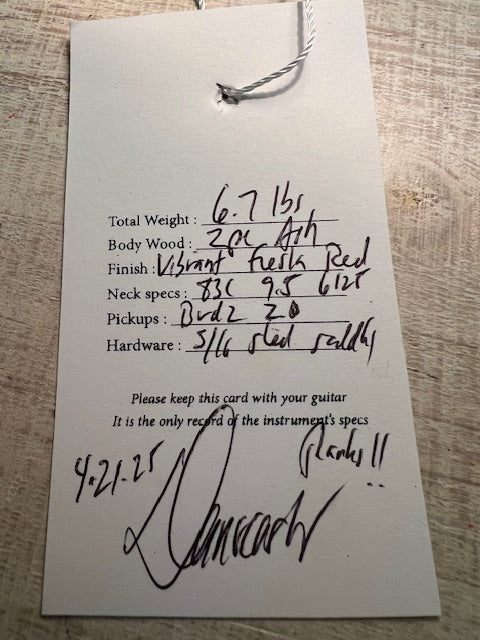 Total Weight : 6.7 lbs
Body Wood : 2pc Ash
Finish : Vibrant Fiesta Red
Neck specs : 83C 9.5 6125
Pickups :
Hardware : 5/16 steel saddles
Please keep this card with your guitar
It is the only record of the instrument's specs
4.21.25
Thanks!!